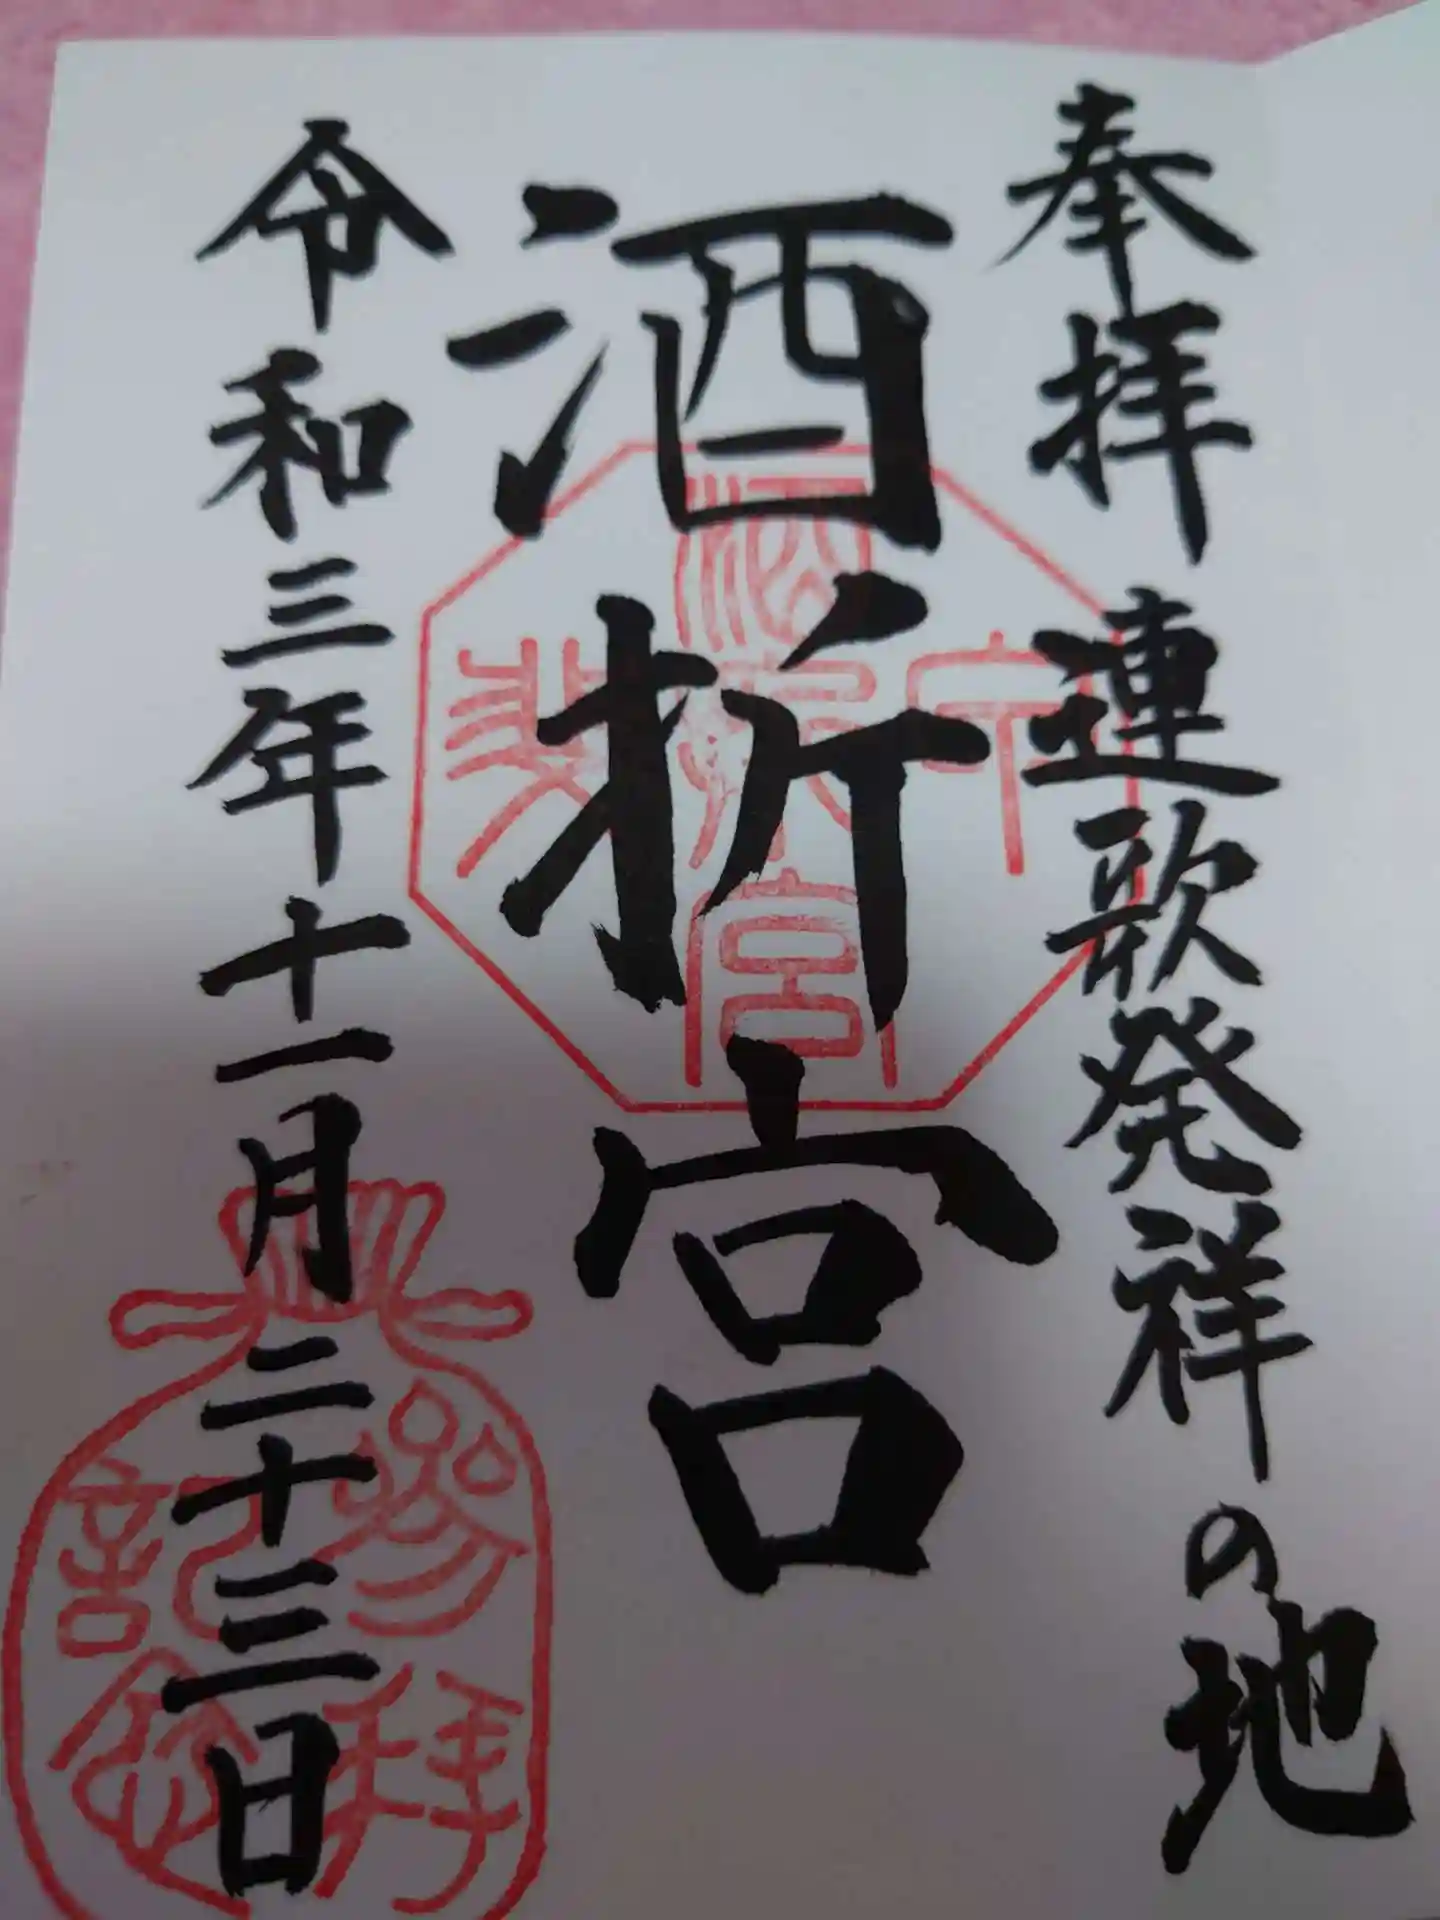 奉拝 連歌発祥の地
酒折宮
令和三年十一月二十三日
酒折宮
参拝
記念